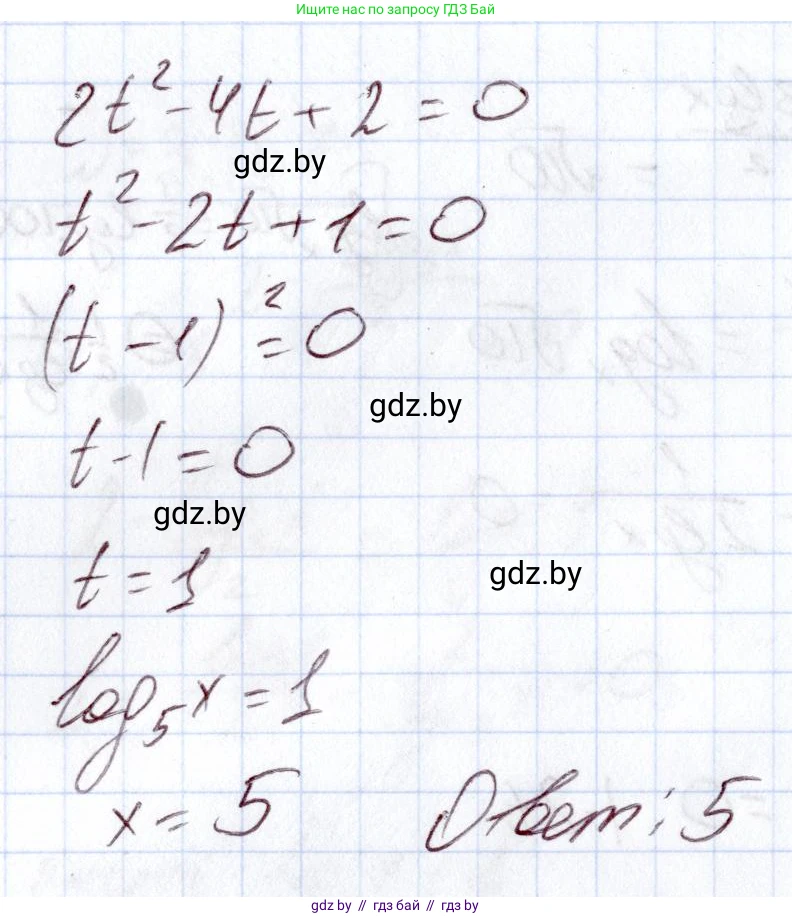 Ищите нас по запросу ГДЗ Бай
2t² - 4t + 2 = 0
gdz.by
t² - 2t + 1 = 0
(t - 1)² = 0
gdz.by
t - 1 = 0
gdz.by
t = 1
gdz.by
log₅x = 1
x = 5 Ответ: 5
gdz.by // гдз бай // gdz.by